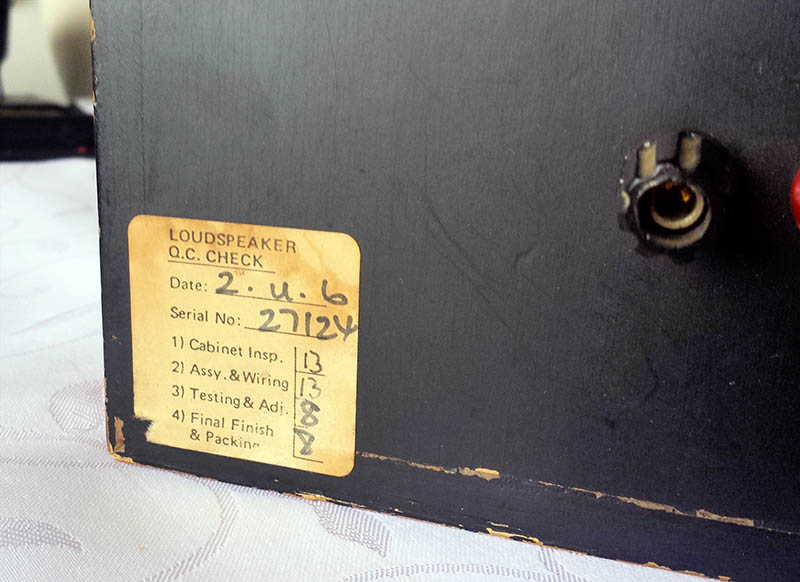 LOUDSPEAKER
Q.C. CHECK
Date: 2.u.6
Serial No: 27124
1) Cabinet Insp. 13
2) Assy. & Wiring 13
3) Testing & Adj. 8
4) Final Finish 8
& Packing